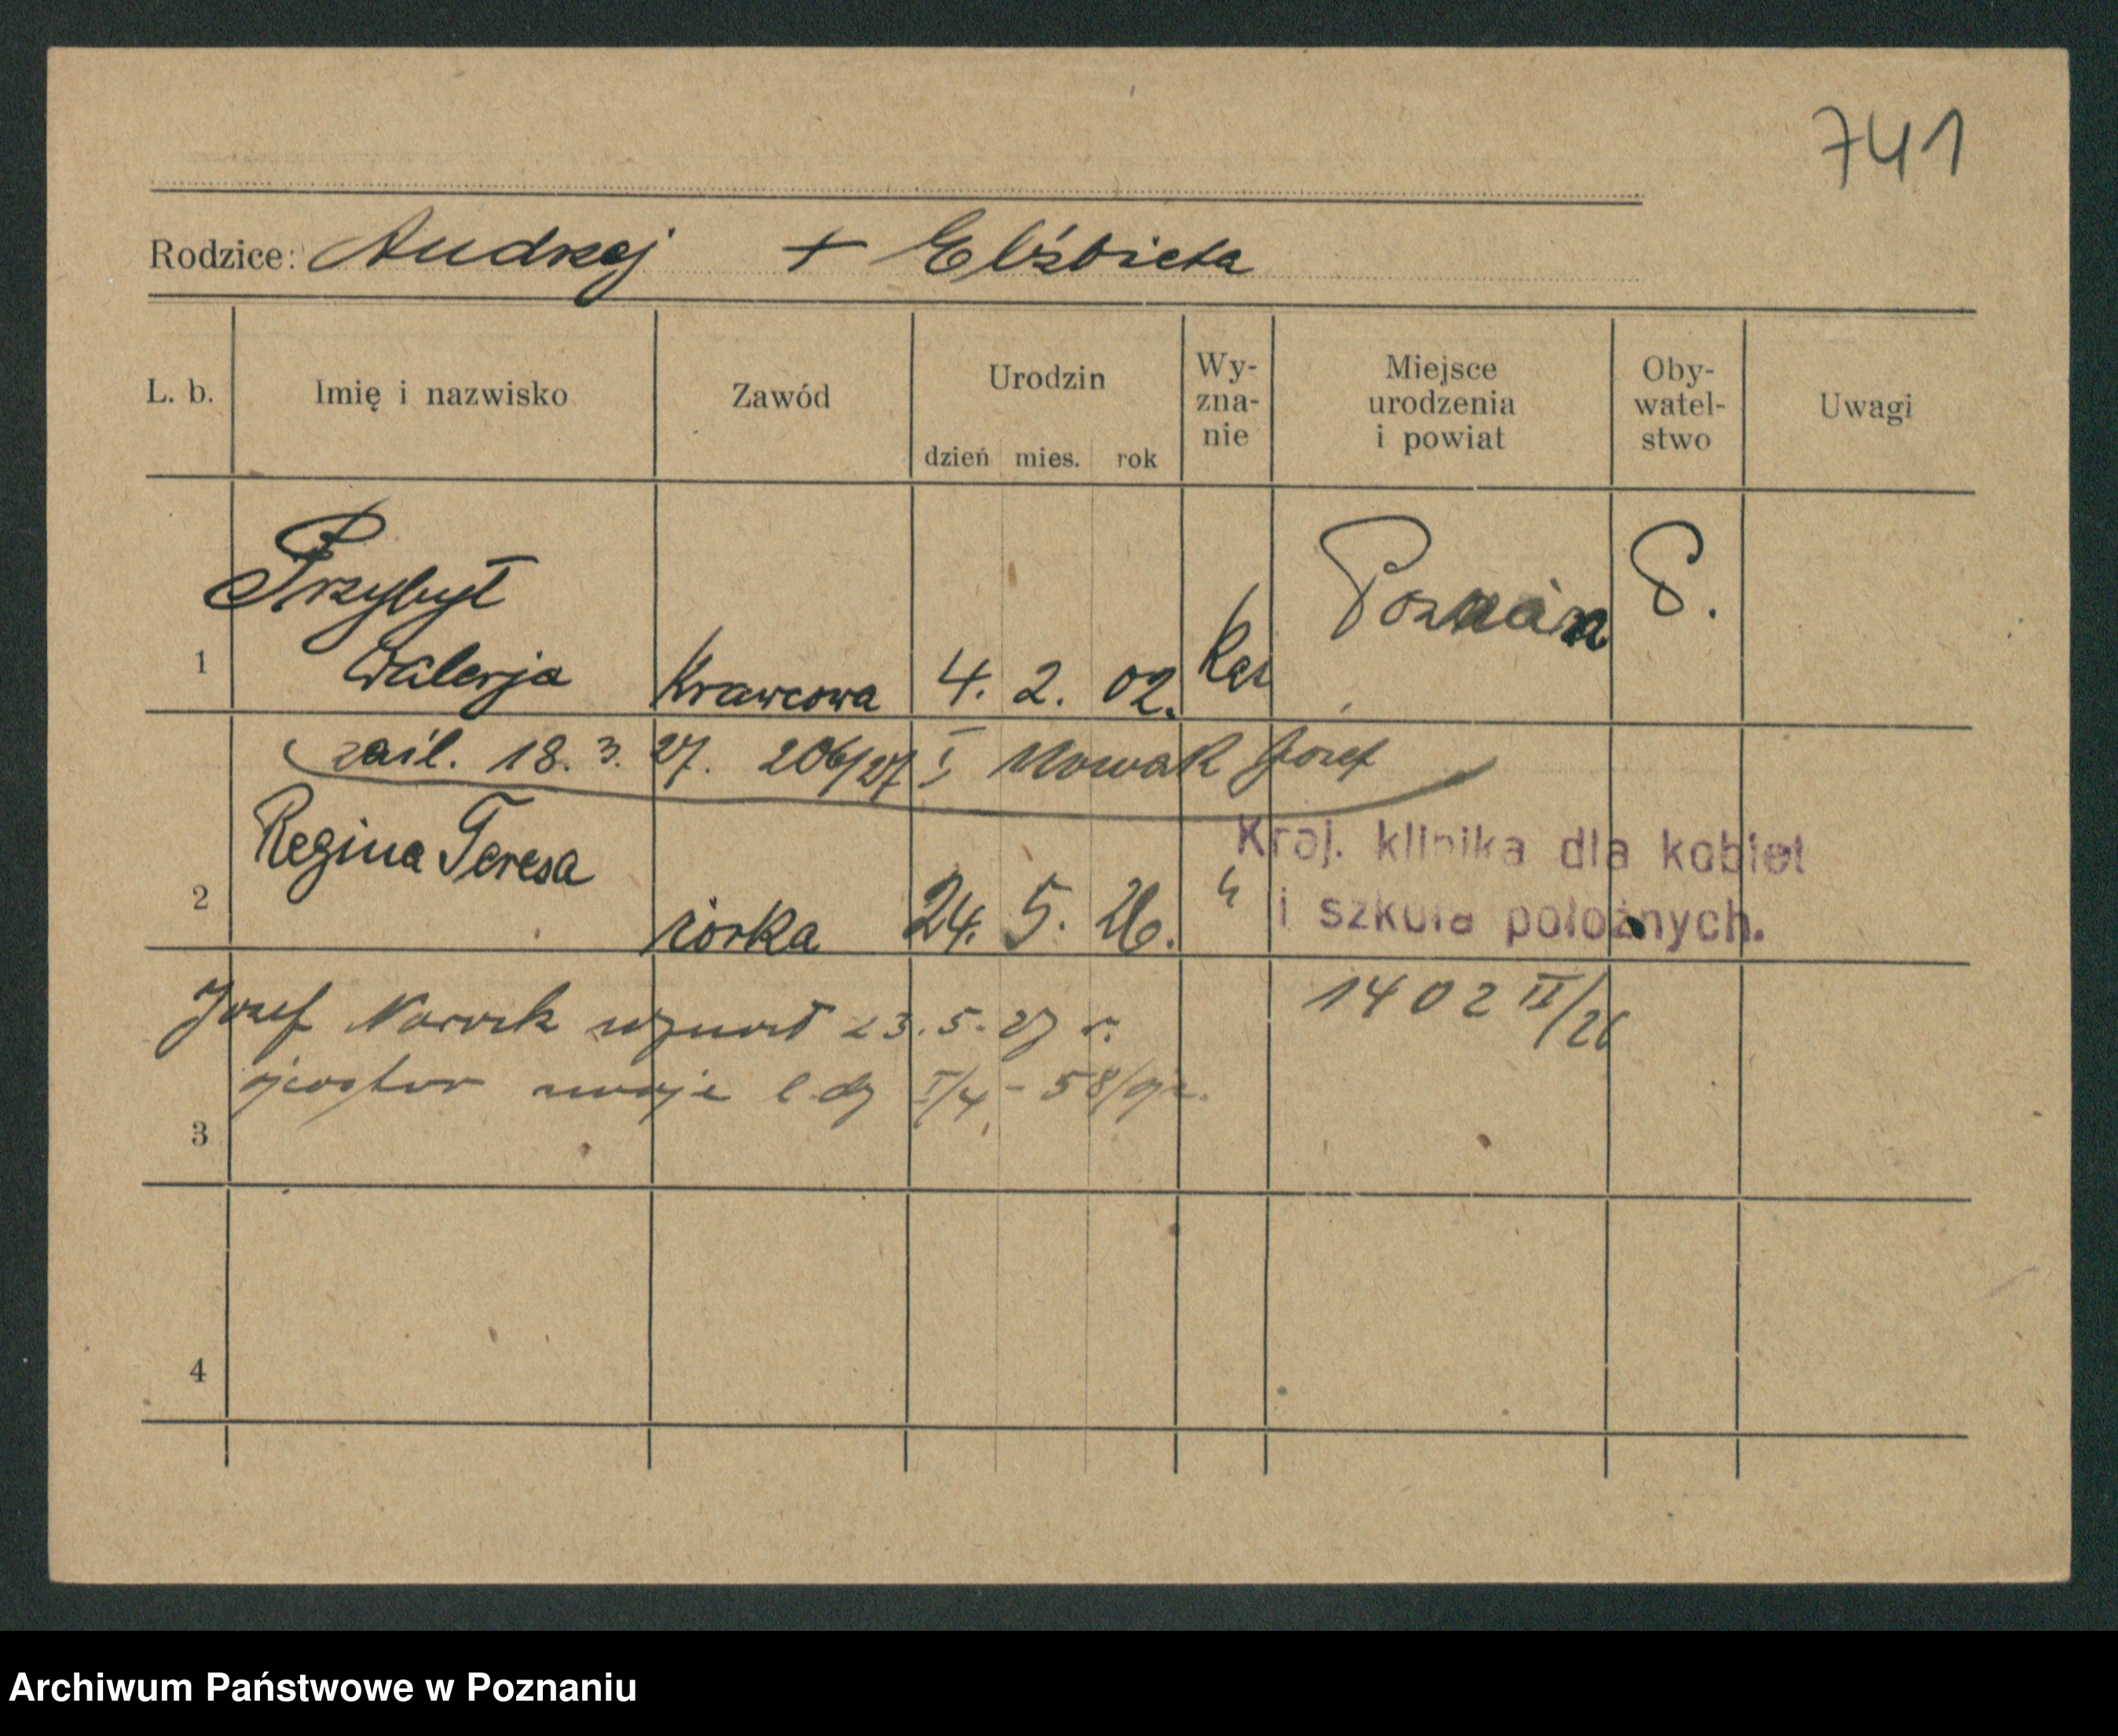 741
Rodzice: Andrzej + Elżbieta
L. b. Imię i nazwisko Zawód Urodzin dzień mies. rok Wy-zna-nie Miejsce urodzenia i powiat Oby-watel-stwo Uwagi
Przybył Poznań P.
1 Walerja Krawcowa 4. 2. 02. Kat
zaśl. 18. 3. 27. 206/27 I Nowak Józef
Regina Teresa Kraj. klinika dla kobiet
2 córka 24. 5. 26. " i szkoła położnych.
Józef Nowak uznał 23. 5. 27 r. 1402 II/26
ojcostwo swoje l. dz I/4 - 58/
3
4
Archiwum Państwowe w Poznaniu